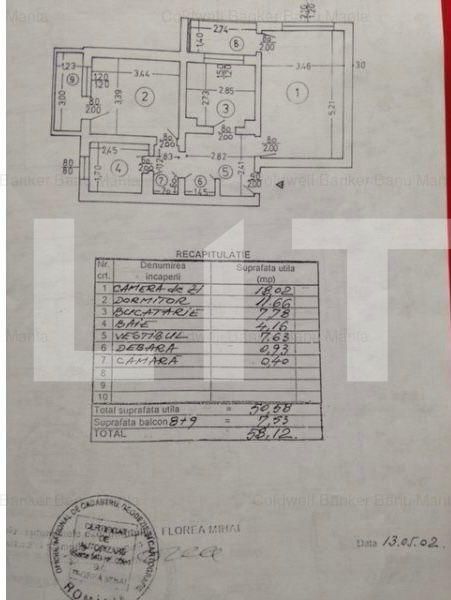 Coldwell Banker Banu Mania
2.74
1.40
8
80
2.00
1.20
1.23
9
3.00
1.20
1.20
3.44
3.39
2
80
2.00
1.50
1.20
2.85
2.73
3
3.46
30
1
5.21
80
2.00
80
2.00
2.45
1.70
4
80
80
1.83
2.82
2.41
7
6
1.45
5
80
2.00
Coldwell Banker Banu Mania
LIT
RECAPITULATIE
Nr. crt. Denumirea incaperii Suprafata utila (mp)
1 CAMERA de ZI 18.02
2 DORMITOR 11.66
3 BUCATARIE 7.78
4 BAIE 4,16
5 VESTIBUL 7.63
6 DEBARA 0,93
7 CAMARA 0,40
8
9
10
Total suprafata utila = 50,58
Suprafata balcon 8+9 = 7,53
TOTAL = 58,12
Coldwell Banker Banu Mania
FLOREA MIHAI
CERTIFICAT
DE
AUTORIZARE
Data 13.05.02.